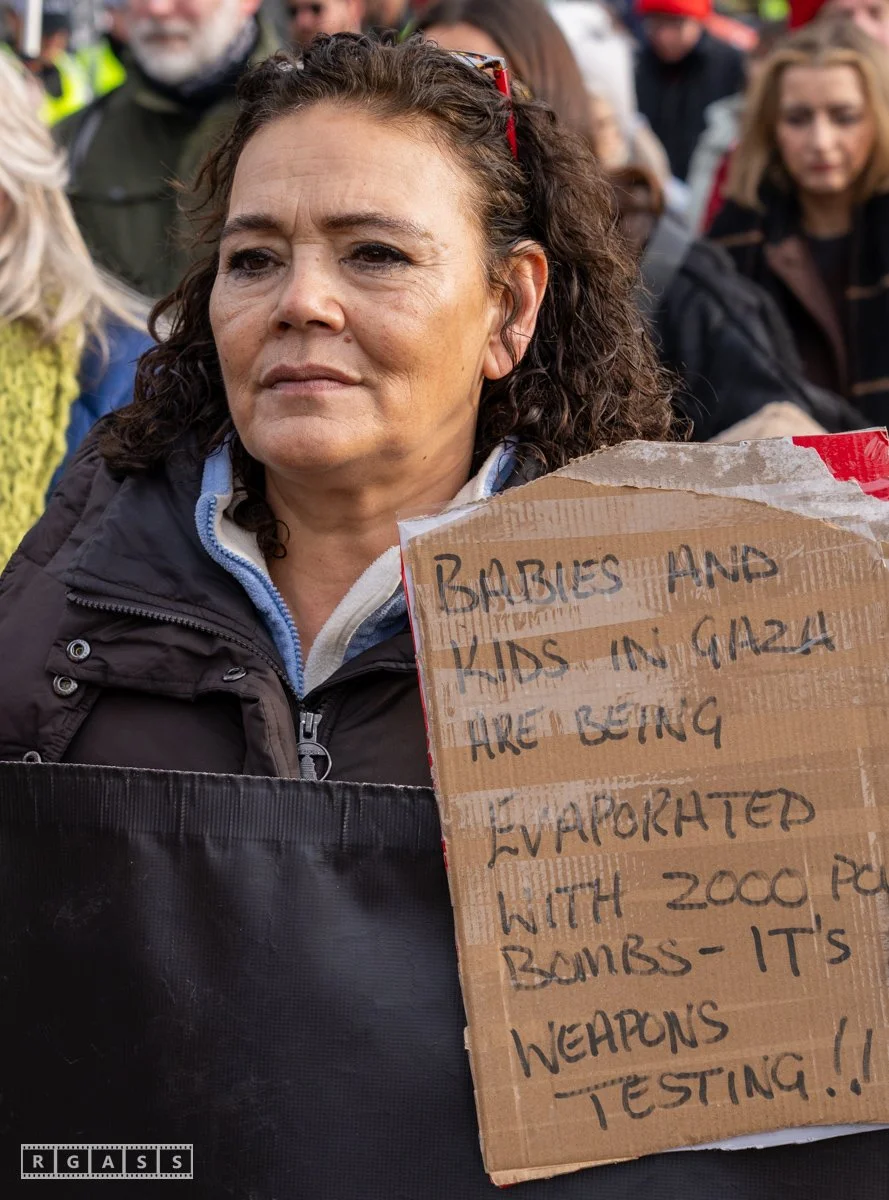 BABIES AND
KIDS IN GAZA
ARE BEING
EVAPORATED
WITH 2000 POU
BOMBS - IT'S
WEAPONS
TESTING!!
RGASS